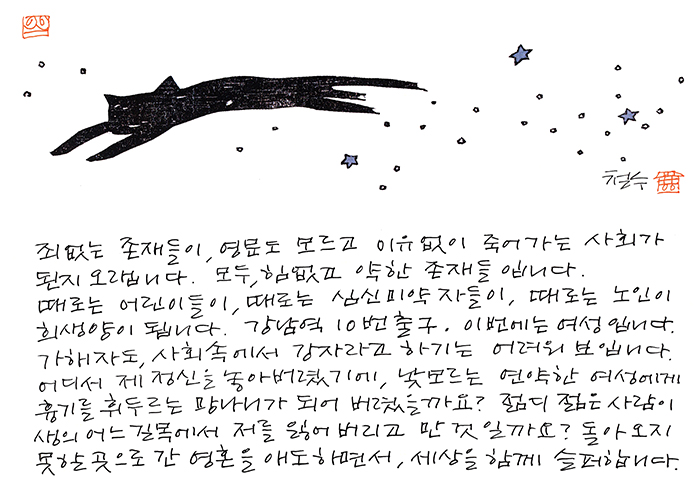 철수
죄없는 존재들이, 영문도 모르고 이유없이 죽어가는 사회가
된지 오랩니다. 모두, 힘없고 약한 존재들 입니다.
때로는 어린이들이, 때로는 심신미약자들이, 때로는 노인이
희생양이 됩니다. 강남역 10번출구. 이번에는 여성입니다.
가해자도, 사회속에서 강자라고 하기는 어려워 보입니다.
어디서 제 정신을 놓아버렸기에, 낯모르는 연약한 여성에게
흉기를 휘두르는 망나니가 되어 버렸을까요? 젊디 젊은 사람이
생의 어느길목에서 저를 잃어 버리고 만 것일까요? 돌아오지
못할 곳으로 간 영혼을 애도하면서, 세상을 함께 슬퍼합니다.